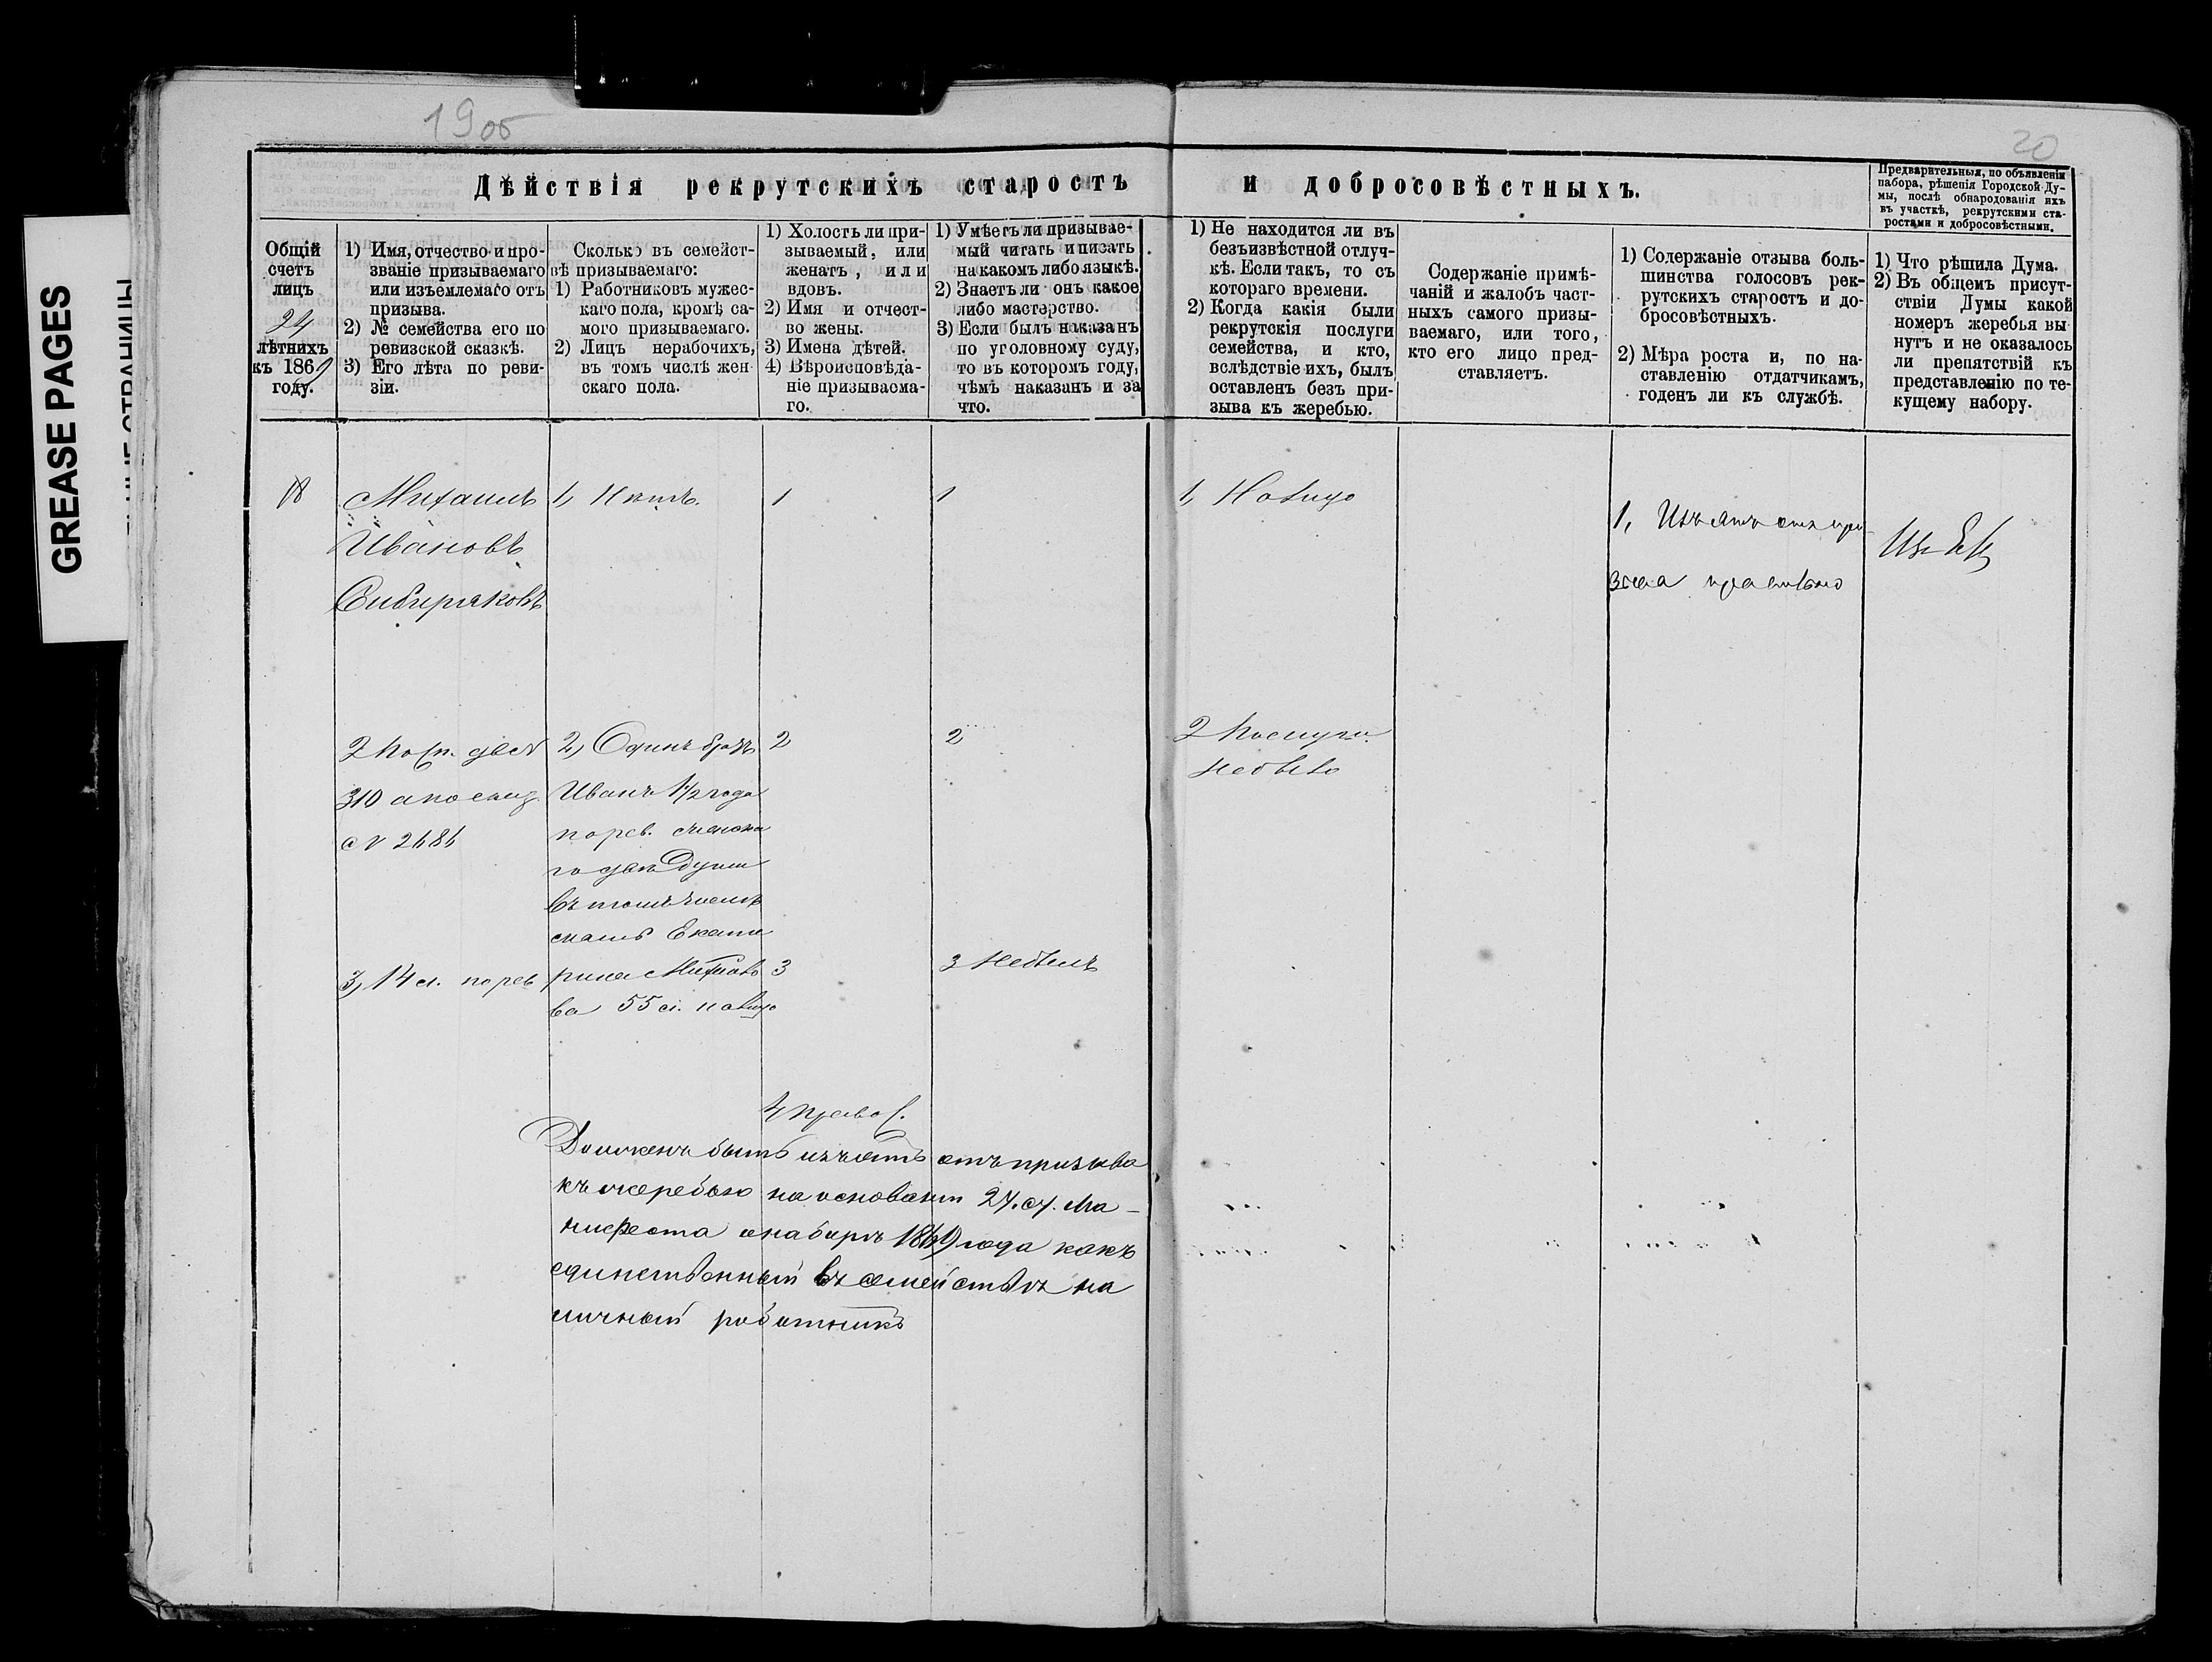 19 об
20
GREASE PAGES
Дѣйствія рекрутскихъ старостъ и добросовѣстныхъ.
Предварительныя, по объявленіи
набора, рѣшенія Городской Ду-
мы, послѣ обнародованія ихъ
въ участкѣ, рекрутскими ста-
ростами и добросовѣстными.
Общій
счетъ
лицъ
24
лѣтнихъ
къ 1869
году.
1) Имя, отчество и про-
званіе призываемаго
или изъемлемаго отъ
призыва.
2) № семейства его по
ревизской сказкѣ.
3) Его лѣта по реви-
зіи.
Сколько въ семейст-
вѣ призываемаго:
1) Работниковъ мужес-
каго пола, кромѣ са-
мого призываемаго.
2) Лицъ нерабочихъ,
въ томъ числѣ жен
скаго пола.
1) Холостъ ли при-
зываемый, или
женатъ, или
вдовъ.
2) Имя и отчест-
во жены.
3) Имена дѣтей.
4) Вѣроисповѣда-
ніе призываема-
го.
1) Умѣетъ ли призывае-
мый читать и писать
на какомъ либо языкѣ.
2) Знаетъ ли онъ какое
либо мастерство.
3) Если былъ наказанъ
по уголовному суду,
то въ которомъ году,
чѣмъ наказанъ и за
что.
1) Не находится ли въ
безъизвѣстной отлуч-
кѣ. Если такъ, то съ
котораго времени.
2) Когда какія были
рекрутскія послуги
семейства, и кто,
вслѣдствіе ихъ, былъ
оставленъ безъ при-
зыва къ жеребью.
Содержаніе примѣ-
чаній и жалобъ част-
ныхъ самого призы-
ваемаго, или того,
кто его лицо пред-
ставляетъ.
1) Содержаніе отзыва боль-
шинства голосовъ рек-
рутскихъ старостъ и до-
бросовѣстныхъ.
2) Мѣра роста и, по на-
ставленію отдатчикамъ,
годенъ ли къ службѣ.
1) Что рѣшила Дума.
2) Въ общемъ присут-
ствіи Думы какой
номеръ жеребья вы
нутъ и не оказалось
ли препятствій къ
представленію по те-
кущему набору.
18
Михаилъ
Ивановъ
Сибиряковъ
2 по
310 а по
№ 2686
3, 14 л. по рев
1, Нѣтъ.
2, Одинъ братъ
Иванъ 1/2 года
по рев. женска
го двѣ души
въ томъ числѣ
мать Екате
рина Михайло
ва 55 л. на лицо
1
2
3
4, Правос.
1
2
3 Небылъ
1, На лицо
2 Послуги
небыло
1, Изъятъ отъ при
зыва правильно
Долженъ быть изъятъ отъ призыва
къ жеребью на основаніи 27. ст. Ма-
нифеста о наборѣ 1869 года какъ
единственный въ семействѣ на
личный работникъ